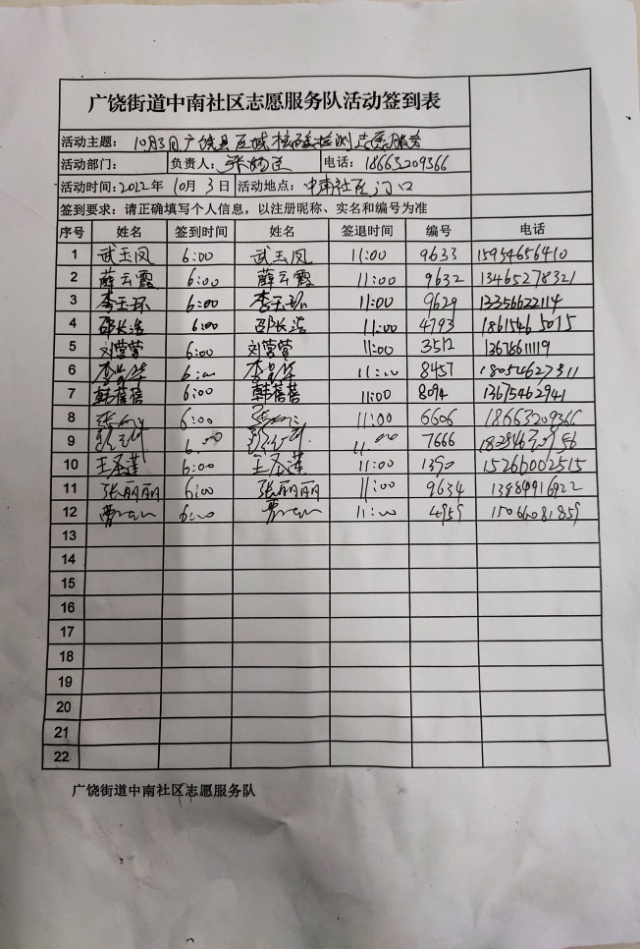 广饶街道中南社区志愿服务队活动签到表
活动主题： 10月3日广饶县区域核酸检测志愿服务
活动部门： 负责人： 电话：18663209366
活动时间：2022年 10月 3日 活动地点：中南社区门口
签到要求：请正确填写个人信息，以注册昵称、实名和编号为准
序号 姓名 签到时间 姓名 签退时间 编号 电话
1 武玉凤 6:00 武玉凤 11:00 9633 15954656410
2 薛云霞 6:00 薛云霞 11:00 9632 13465278321
3 李玉环 6:00 李玉环 11:00 9629 13356622114
4 邵长浩 6:00 邵长浩 11:00 4793 18615465015
5 刘营营 6:00 刘营营 11:00 3512 13678611119
6 6:00 11:00 8457
7 韩蓓蓓 6:00 韩蓓蓓 11:00 8094 13675462941
8 6:00 11:00 6606 18663209366
9 6:00 11:00 7666
10 王圣莲 6:00 王圣莲 11:00 1390 15266002515
11 张丽丽 6:00 张丽丽 11:00 9634
12 6:00 11:00 4959 15066081859
13
14
15
16
17
18
19
20
21
22
广饶街道中南社区志愿服务队